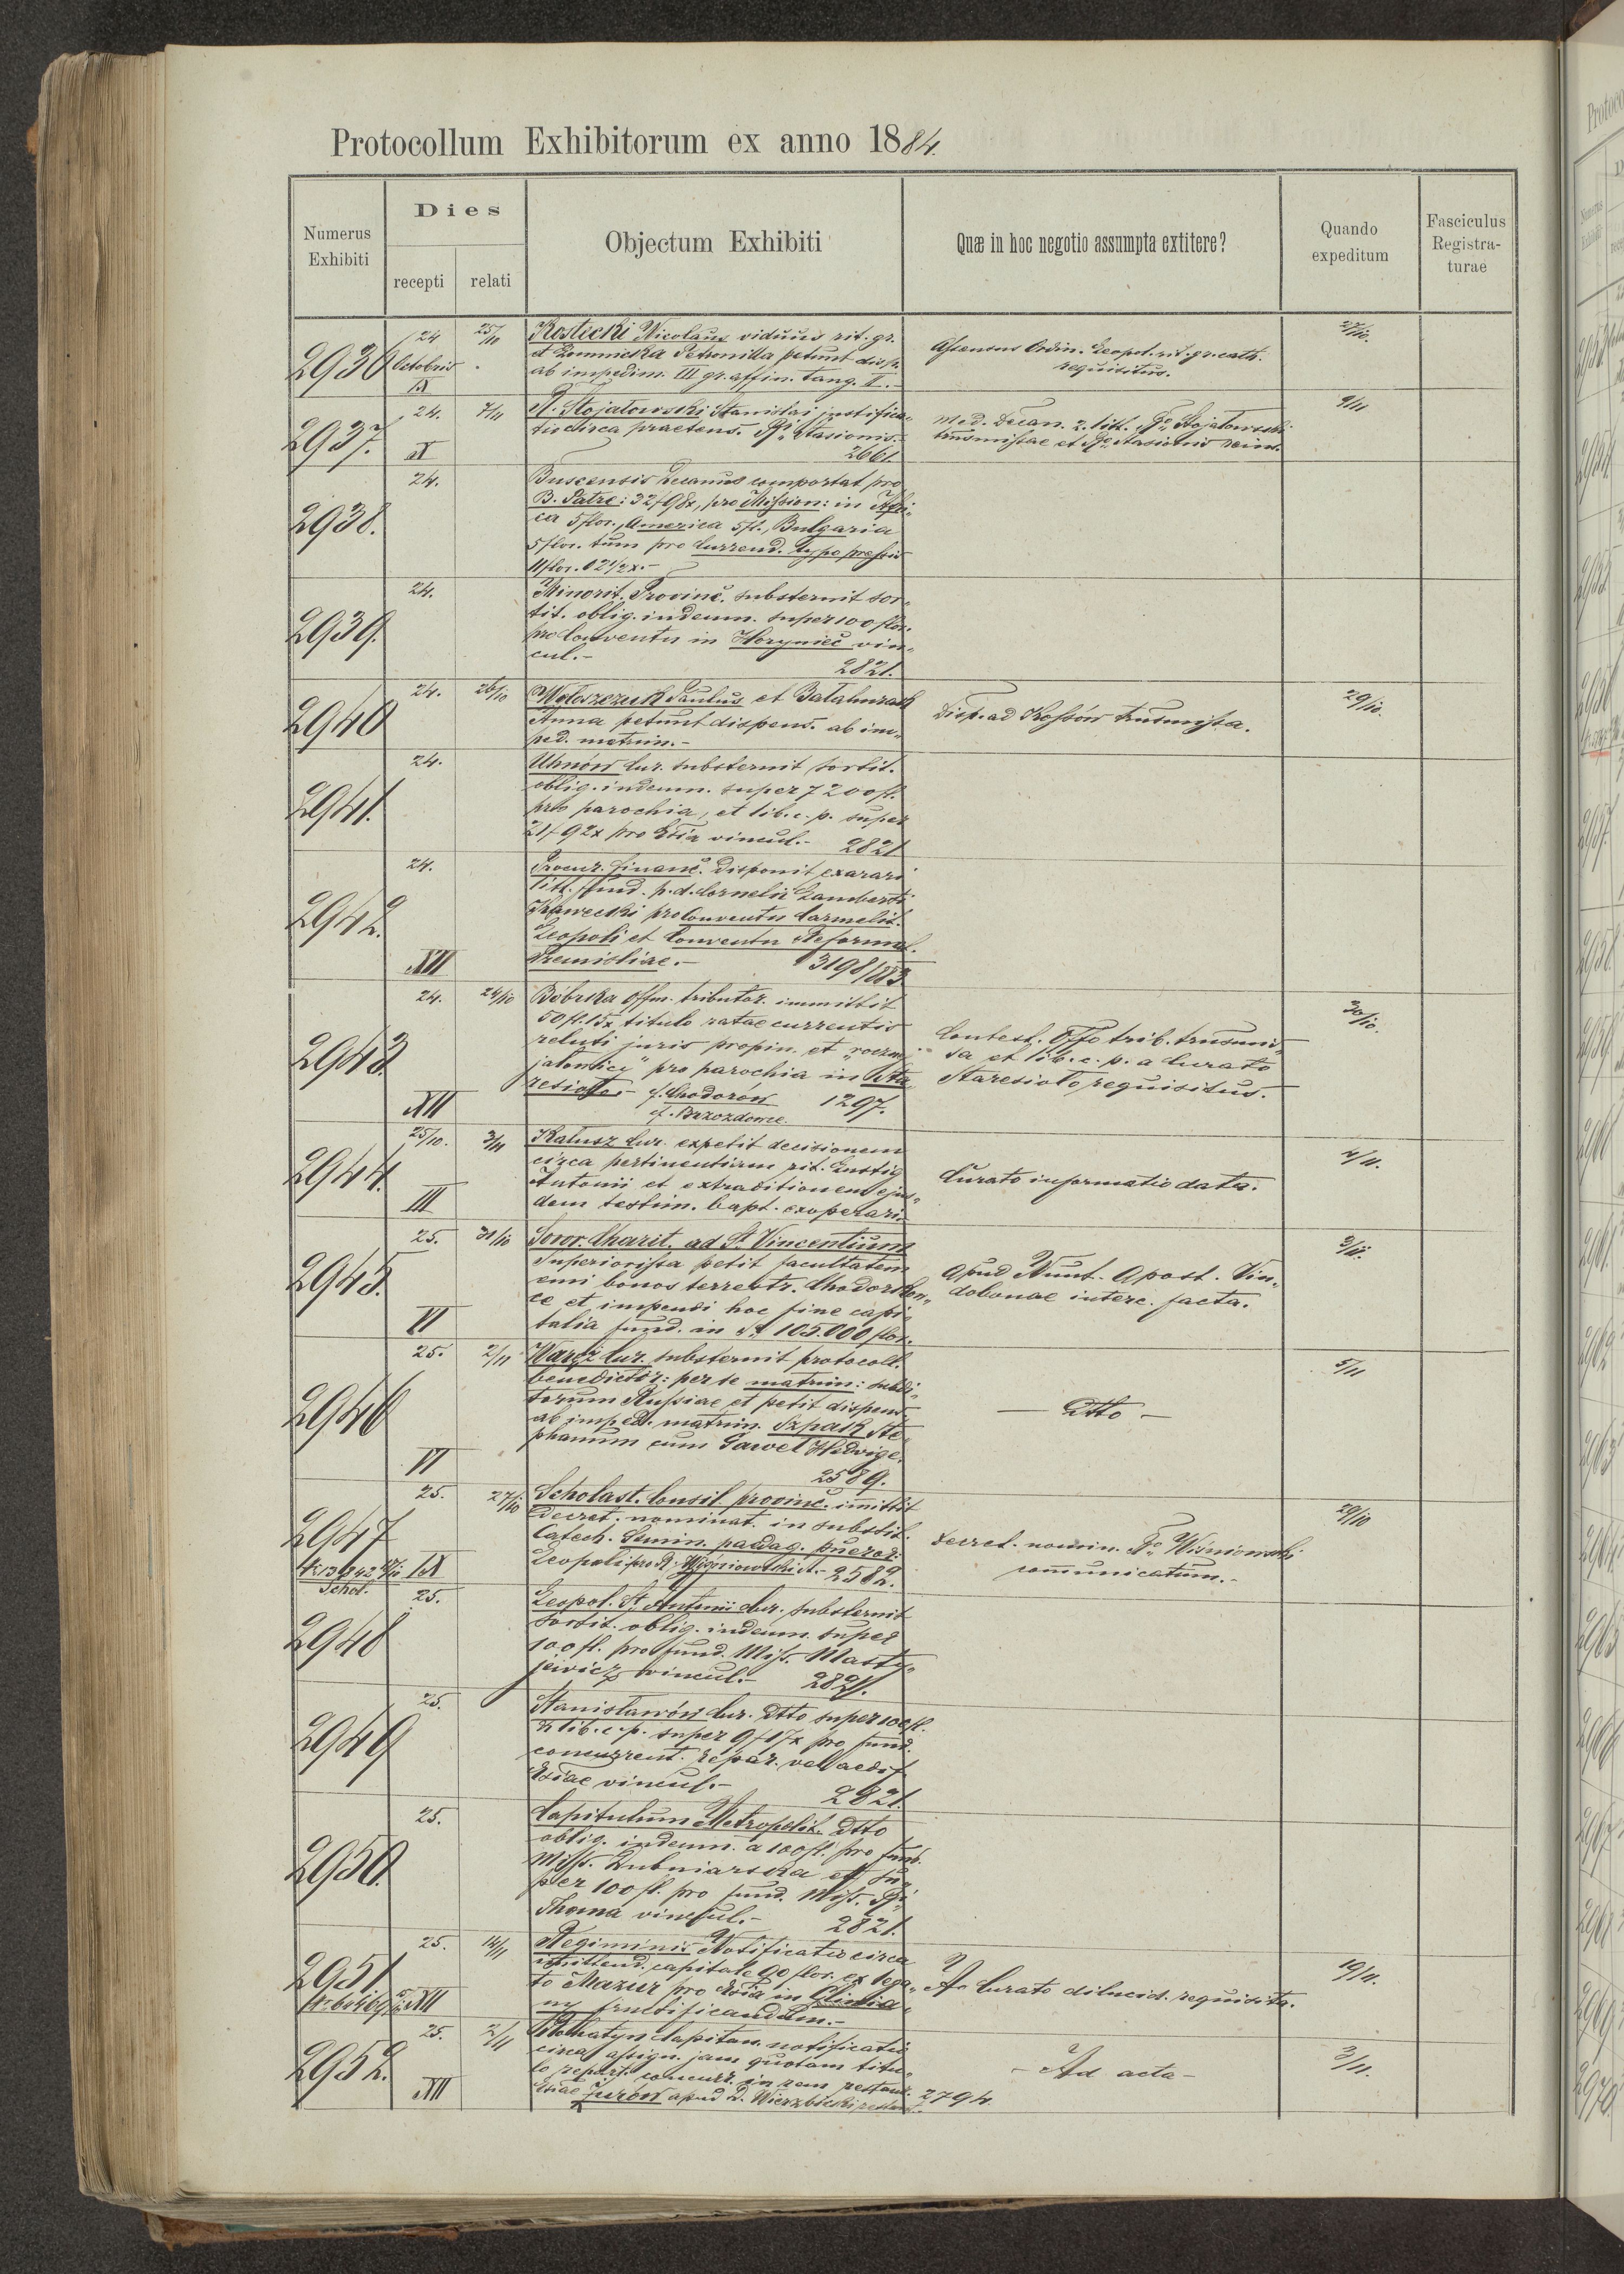 Protocollum Exhibitorum ex anno 1884.
Numerus Exhibiti
Dies
recepti
relati
Objectum Exhibiti
Quæ in hoc negotio assumpta extitere?
Quando expeditum
Fasciculus Registra-
turae
2936
24 Octobris
IX
25/10
Rostecki Nicolaus viduus rit. gr.
et Petronilla petunt disp.
ab impedim. III gr. affin. tang. II.-
Assensus Ordin. Leopol. rit. gr. cath.
requisitus.
27/10.
2937.
24.
X
7/11
R. Stojałowski Stanislai justifica-
tio circa praetens. Stasionis.-
2661.
Med. Decan. 2. litt. Stojałowski
9/11
2938.
24.
Buscensis Decanus comportat pro
B. Patre: 32f98x, pro Mission: in Afri-
ca 5 flor., America 5fl., Bulgaria
5 flor. tum pro currend. typo pressis
11 flor. 02 1/2x.-
2939.
24.
Minorit. Provinc. substernit sor-
tit. oblig. indemn. super 100 flor.
pro Conventu in Horyniec vin-
cul.-
2821.
2940
24.
26/10
Wołoszczuk Paulus et
Anna petunt dispens. ab im-
ped. matrim.-
Disp. ad Kossów transmissa.
29/10.
2941.
24.
Uhnów Cur. substernit sortit.
oblig. indemn. super 7200fl.
pro parochia, et lib. c. p. super
21f92x pro Ecclia vincul.- 2821
2942.
24.
XII
Procur. Financ. disponit exarari
litt. fund. p. d. Cornelii Lamberti
pro Conventu Carmelit.
Leopoli et Conventu Reformat.
Premisliae.-
3198/883
2943.
24.
XII
24/10
Bóbrka Offm. tributor. immittit
50fl. 15x titulo ratae currentis
reluti juris propin. et
pro parochia in Sta-
resioło.- cf. Chodorów 1297.
cf. Brzozdowce.
Contest. Offo trib. transmis-
sa et lib. c. p. a Curato
Staresioło requisitus.
30/10.
2944.
25/10.
III
3/11
Kałusz Cur. expetit decisionem
circa pertinentiam rit. Lustig
Antonii et extraditionem ejus-
dem testim. bapt. exoperari.-
Curato informatio data.
4/11.
2945.
25.
VI
31/10
Soror. Charit. ad St. Vincentium
Superiorissa petit facultatem
emi bonos terrestr.
ce et impendi hoc fine capi-
talia fund. in 105.000 flor.
Apud Nunt. Apost. Vin-
dobonae interc. facta.
2946
25.
VI
2/11
Waręż Cur. substernit protocoll.
benedictor: per se matrim: subdi-
torum Russiae et petit dispens.
ab imped. matrim. Szpak Ste-
phanum cum Gaweł Hedvige.
2589.
- Dtto -
5/11
2947
25.
IX
27/10
Schol.
Scholast. Consil. provinc. immittit
Decret. nominat. in substit.
Catech. Semin. paedag. pueror.
Leopoli pro R. Wiśniowski A.- 2582.
Decret. nomin. Wiśniowski
communicatum.-
29/10
2948
25.
Leopol. St. Antonii Cur. substernit
sortit. oblig. indemn. super
100fl. pro fund. Miss. Masty-
jewicz vincul.- 2821.
2949
25.
Stanisławów Cur. Dtto super 100fl.
lib. c. p. super 9f17x pro fund.
concurrent. repar. vel aedif.
Ecclae vincul.-
2821.
2950.
25.
Capitulum Metropolit. Dtto
oblig. indemn. a 100fl. pro fund.
Miss. Dubniarska et su-
per 100fl. pro fund. Miss.
Thoma vincul.-
2821.
2951
25.
XII
14/11
Regiminis Notificatio circa
immittend. capitale 90 flor. ex lega-
to Mazur pro Ecclia in Glinia-
ny fructificandum.-
A Curato dilucid. requisita.
19/11.
2952.
25.
XII
2/11
Rohatyn Capitan. notificatio
circa assign. jam quotam titu-
lo repart. concurr. in rem restaur.
Ecclae Żurów apud D. Wierzbicki
2794.
- Ad acta -
3/11.